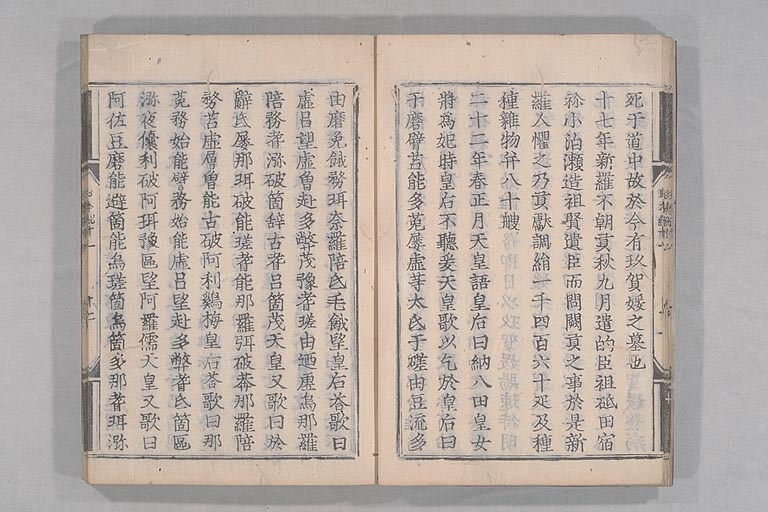 死于道中故於今有玖賀媛之墓也
十七年新羅不朝貢秋九月遣的臣祖砥田宿
祢小泊瀬造祖賢遺臣而問闕貢之事於是新
羅人懼之乃貢獻調絹一千四百六十疋及種
種雜物并八十艘
二十二年春正月天皇語皇后曰納八田皇女
將為妃時皇后不聽爰天皇歌以乞於皇后曰
于磨臂苔能多菟屢虛等太氐于磋由豆流多
由磨兔餓務珥奈羅陪氐毛餓望皇后荅歌曰
虛呂望虛曾赴多弊茂豫耆瑳由廼虛烏那羅
陪務耆瀰破箇辭古耆呂箇茂天皇又歌曰於
辭氐屢那珥破能瑳耆能那羅弭破莽那羅陪
務苔虛層曾能古破阿利鷄梅皇后荅歌曰那
菟務始能譬務始能虛呂望赴多弊耆氐箇區
瀰夜儾利破阿珥豫區望阿羅儒天皇又歌曰
阿佐豆磨能避箇能烏瑳箇烏箇多那耆珥瀰